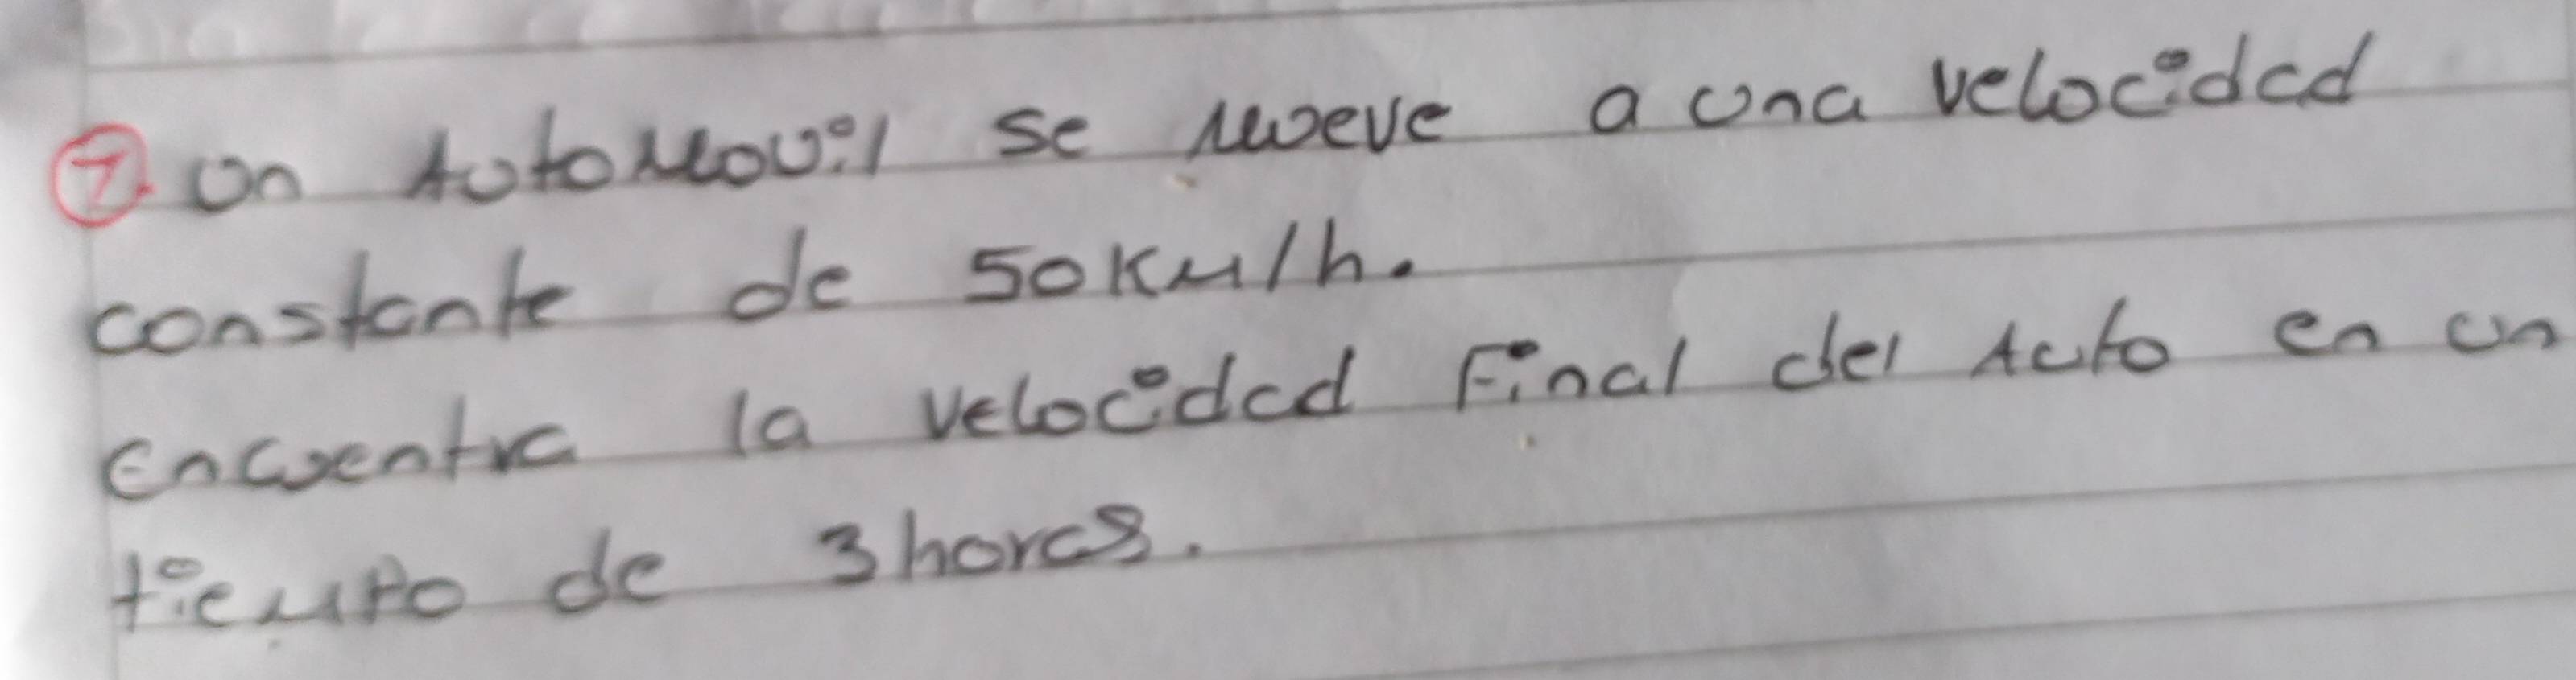 7. Un Automovil se mueve a una velocidad
constante de 50km/h.
encuentra la velocidad Final del Auto en un
tiempo de 3 horas.